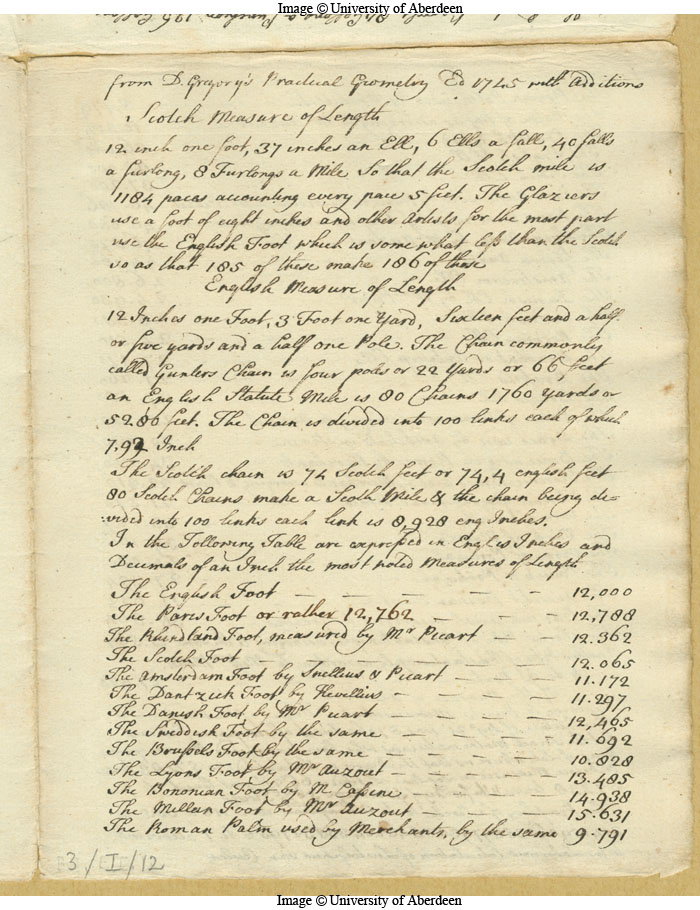 Image © University of Aberdeen
from D. Gregory's Practical Geometry Ed 1745 with Additions
Scotch Measure of Length
12 inch one foot, 37 inches an Ell, 6 Ells a fall, 40 falls
a furlong, 8 Furlongs a Mile So that the Scotch mile is
1184 paces accounting every pace 5 feet. The Glaziers
use a foot of eight inches and other Artists for the most part
use the English Foot which is some what less than the Scotch
so as that 185 of these make 186 of those
English Measure of Length
12 Inches one Foot, 3 Foot one Yard, Sixteen feet and a half
or five yards and a half one Pole. The Chain commonly
called Gunters Chain is four poles or 22 Yards or 66 feet
an English Statute Mile is 80 Chains 1760 Yards or
5280 feet. The Chain is divided into 100 links each of which
7,92 Inch
The Scotch chain is 74 Scotch feet or 74,4 english feet
80 Scotch Chains make a Scoth Mile & the chain being de=
vided into 100 links each link is 8,928 eng Inches.
In the Following Table are expressed in Englis Inches and
Decimals of an Inch the most noted Measures of Length
The English Foot — — — — — 12,000
The Paris Foot or rather 12,762 — — — 12,788
The Rhindland Foot, measured by Mr Picart — — 12.362
The Scotch Foot — — — — — — 12.065
The Amsterdam Foot by Snellius & Picart — — — 11.172
The Dantzick Foot by Hevellius — — — — 11.297
The Danish Foot by Mr Picart — — — — 12,465
The Sweddish Foot by the same — — — — 11.692
The Brussels Foot by the same — — — — 10.828
The Lyons Foot by Mr Auzout — — — — 13.485
The Bononian Foot by M Cassine — — — — 14.938
The Millan Foot by Mr Auzout — — — — 15.631
The Roman Palm used by Merchants, by the same 9.791
3/I/12
Image © University of Aberdeen